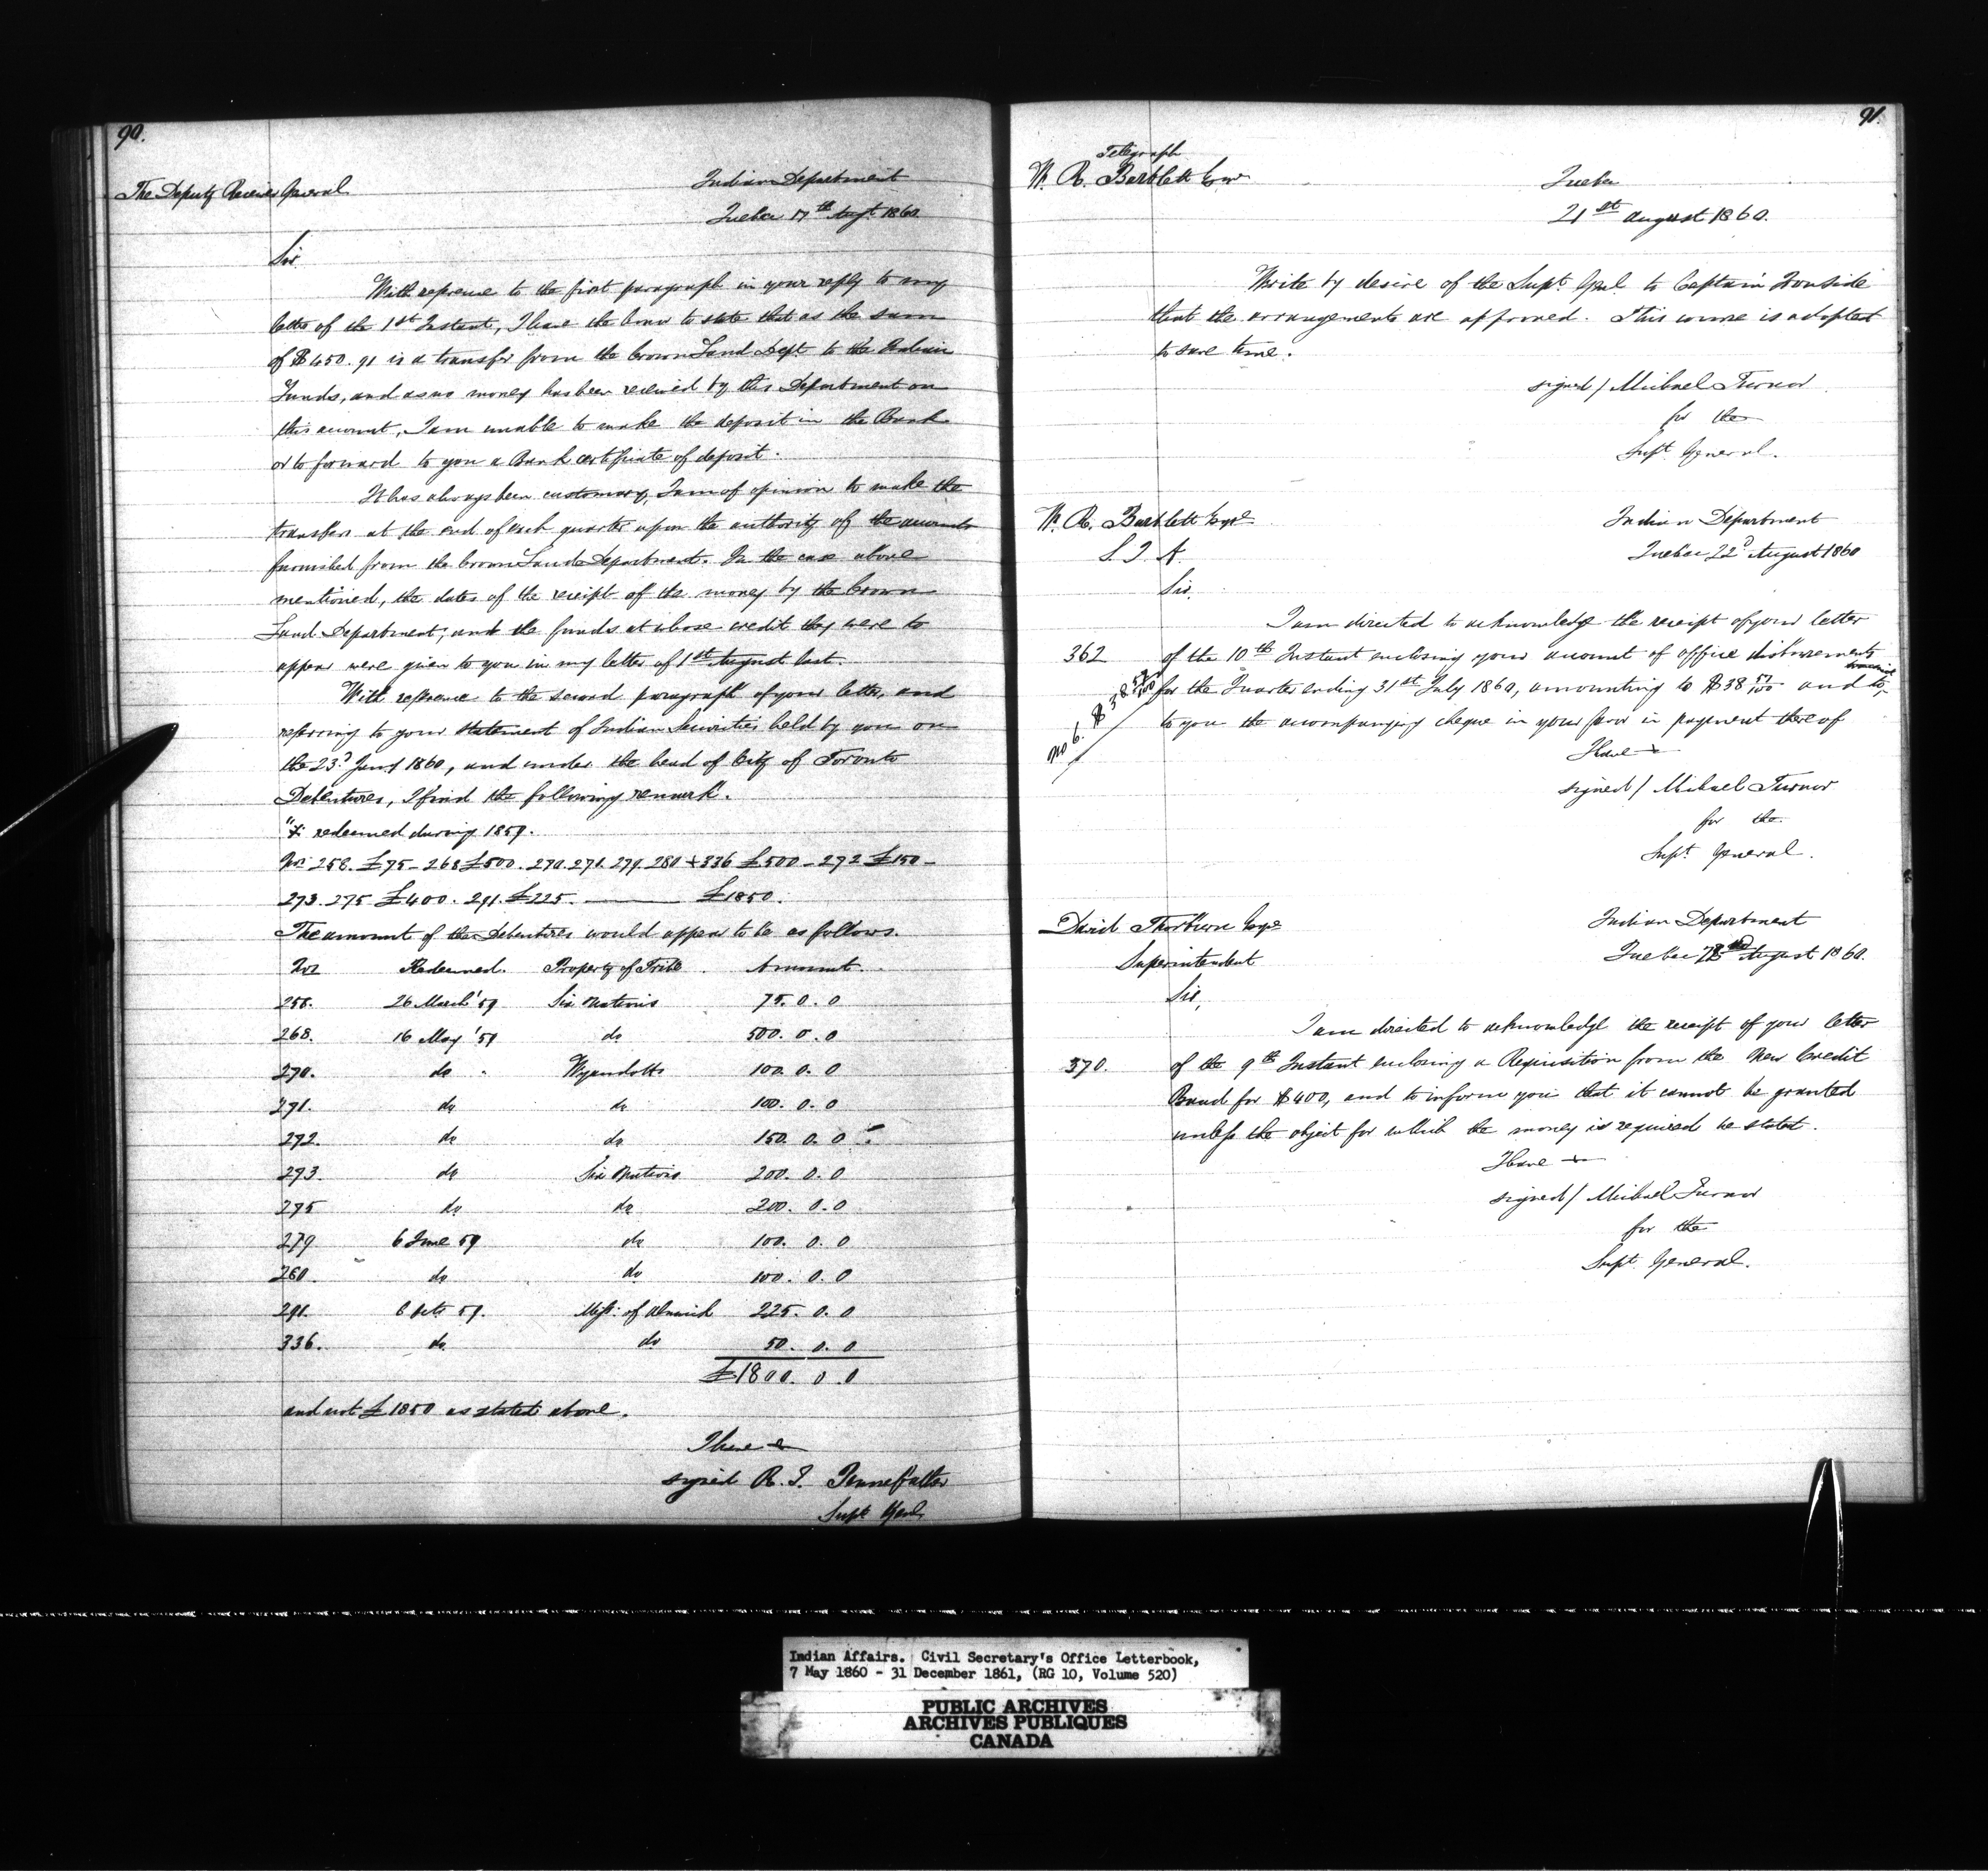 90.
The Deputy Receiver General
Indian Department
Quebec 17th Augt 1860
Sir
With reference to the first paragraph in your reply to my
letter of the 1st Instant, I have the honor to state that as the sum
of $450.91 is a transfer from the Crown Land Dept to the Indian
Funds, and as no money has been received by this Department on
this account, I am unable to make the deposit in the Bank
or to forward to you a Bank certificate of deposit.
It has always been customary, I am of opinion to make the
transfers at the end of each quarter upon the authority of the accounts
furnished from the Crown Lands Department. In the case above
mentioned, the dates of the receipt of the money by the Crown
Land Department, and the funds at whose credit they were to
appear were given to you in my letter of 1st August last.
With reference to the second paragraph of your letter, and
referring to your statement of Indian Securities held by you on
the 23d June 1860, and under the head of City of Toronto
Debentures, I find the following remark.
redeemed during 1859.
Nos 258. £75 - 268 £500. 270. 271. 279. 280 + 336 £500 - 272 £150 -
273. 275 £400. 291. £225. £1850.
The amount of the Debentures would appear to be as follows.
Nos Redeemed. Property of Tribe Amount.
258. 26 March '59 Six Nations 75. 0. 0
268. 16 May '59 do 500. 0. 0
270. do Wyandotts 100. 0. 0
271. do do 100. 0. 0
272. do do 150. 0. 0
273. do Six Nations 200. 0. 0
275 do do 200. 0. 0
279 6 June 59 do 100. 0. 0
280. do do 100. 0. 0
291. 6 Octr 59. Miss: of Alnwick 225. 0. 0
336. do do 50. 0. 0
£1800. 0. 0
and not £1850 as stated above.
I have
signed R. T. Pennefather
Supt Genl
91.
Telegraph
W. R. Bartlett Esqre
Quebec
21st August 1860.
Write by desire of the Supt. Genl. to Captain Ironside
that the arrangements are approved. This course is adopted
to save time.
signed / Michael Turnor
for the
Supt. General.
W. R. Bartlett Esqre
S. I. A.
Indian Department
Quebec 22d August 1860
Sir,
I am directed to acknowledge the receipt of your letter
362 of the 10th Instant enclosing your account of office disbursements
No 6. $38 57/100 for the Quarter ending 31st July 1860, amounting to $38 57/100 and to transmit
to you the accompanying cheque in your favor in payment there of
I have
signed / Michael Turnor
for the
Supt. General.
David Thorburn Esqre
Superintendent
Indian Department
Quebec August 1860.
Sir,
I am directed to acknowledge the receipt of your letter
370. of the 9th Instant enclosing a Requisition from the New Credit
Band for $400, and to inform you that it cannot be granted
unless the object for which the money is required be stated.
I have
signed / Michael Turnor
for the
Supt. General.
Indian Affairs. Civil Secretary's Office Letterbook,
7 May 1860 - 31 December 1861, (RG 10, Volume 520)
PUBLIC ARCHIVES
ARCHIVES PUBLIQUES
CANADA